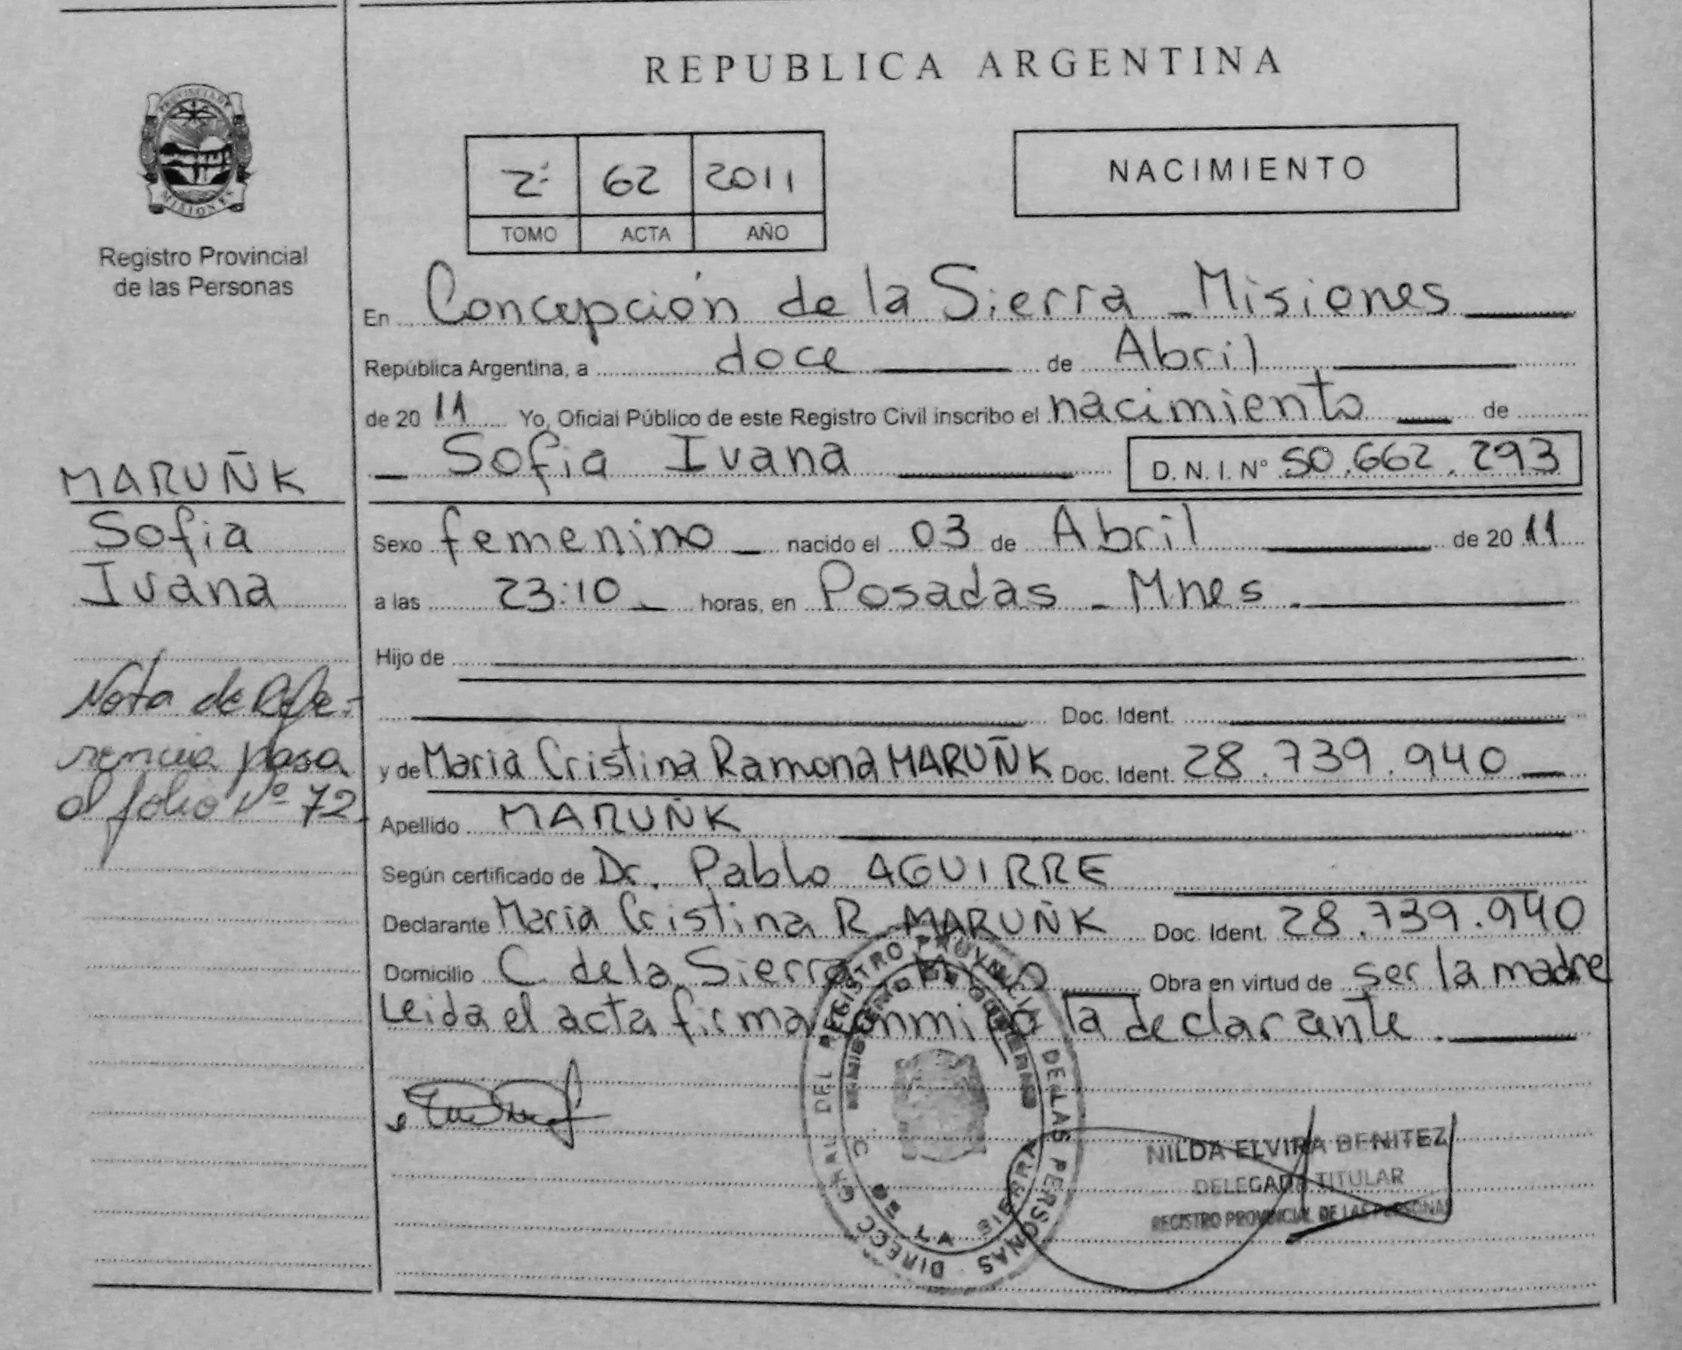 REPUBLICA ARGENTINA
PROVINCIA DE
MISIONES
Registro Provincial
de las Personas
2º 62 2011
TOMO ACTA AÑO
NACIMIENTO
En Concepción de la Sierra - Misiones
República Argentina, a doce de Abril
de 2011 Yo, Oficial Público de este Registro Civil inscribo el nacimiento de
Sofia Ivana D. N. I. Nº 50.662.293
MARUÑK
Sofia
Ivana
Sexo femenino nacido el 03 de Abril de 2011
a las 23:10 horas, en Posadas - Mnes.
Hijo de
Doc. Ident.
y de Maria Cristina Ramona MARUÑK Doc. Ident. 28.739.940
Nota de Refe-
rencia pasa
al folio Nº 72
Apellido MARUÑK
Según certificado de Dr. Pablo AGUIRRE
Declarante Maria Cristina R. MARUÑK Doc. Ident. 28.739.940
Domicilio C. de la Sierra Mnes Obra en virtud de ser la madre
Leida el acta firma conmigo la declarante.
DIRECC GRAL DEL REGISTRO PROVINCIAL DE LAS PERSONAS
MINISTERIO DE GOBIERNO
C. DE LA SIERRA
NILDA ELVIRA BENITEZ
DELEGADA TITULAR
REGISTRO PROVINCIAL DE LAS PERSONAS